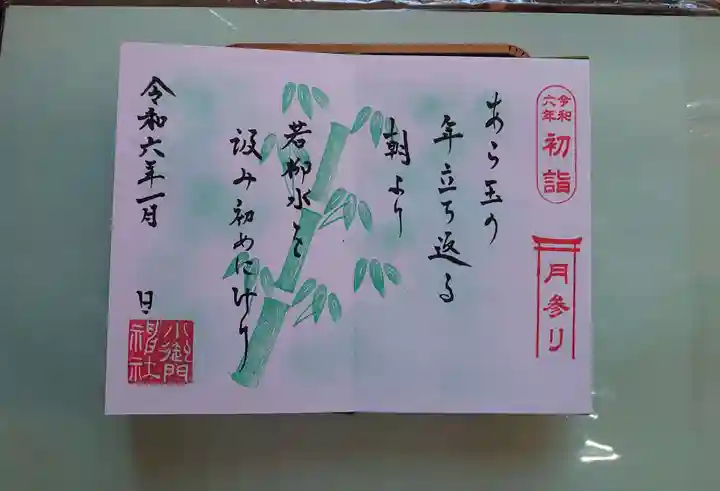 令和六年
初詣
月参り
あら玉の
年立ち返る
朝より
若柳水を
汲み初めにけり
令和六年一月 日
小御門神社